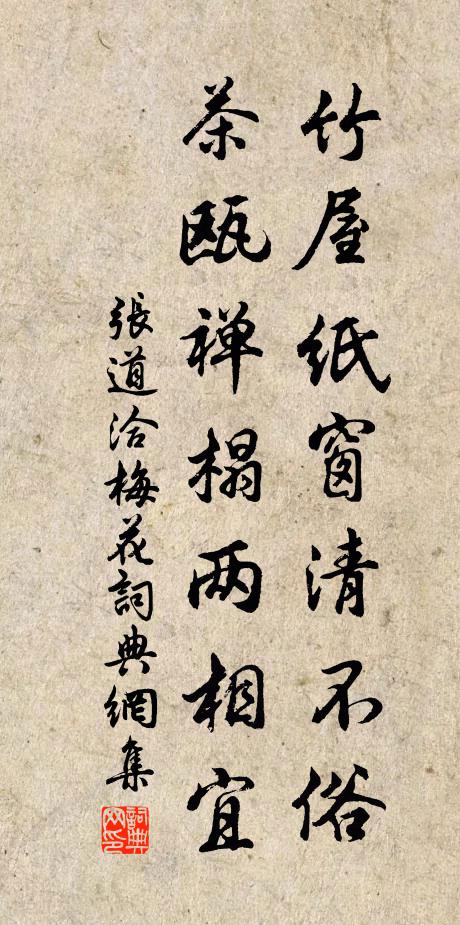 竹屋紙窗清不俗
茶瓯禅榻两相宜
張道洽梅花詞典網集
詞典网印